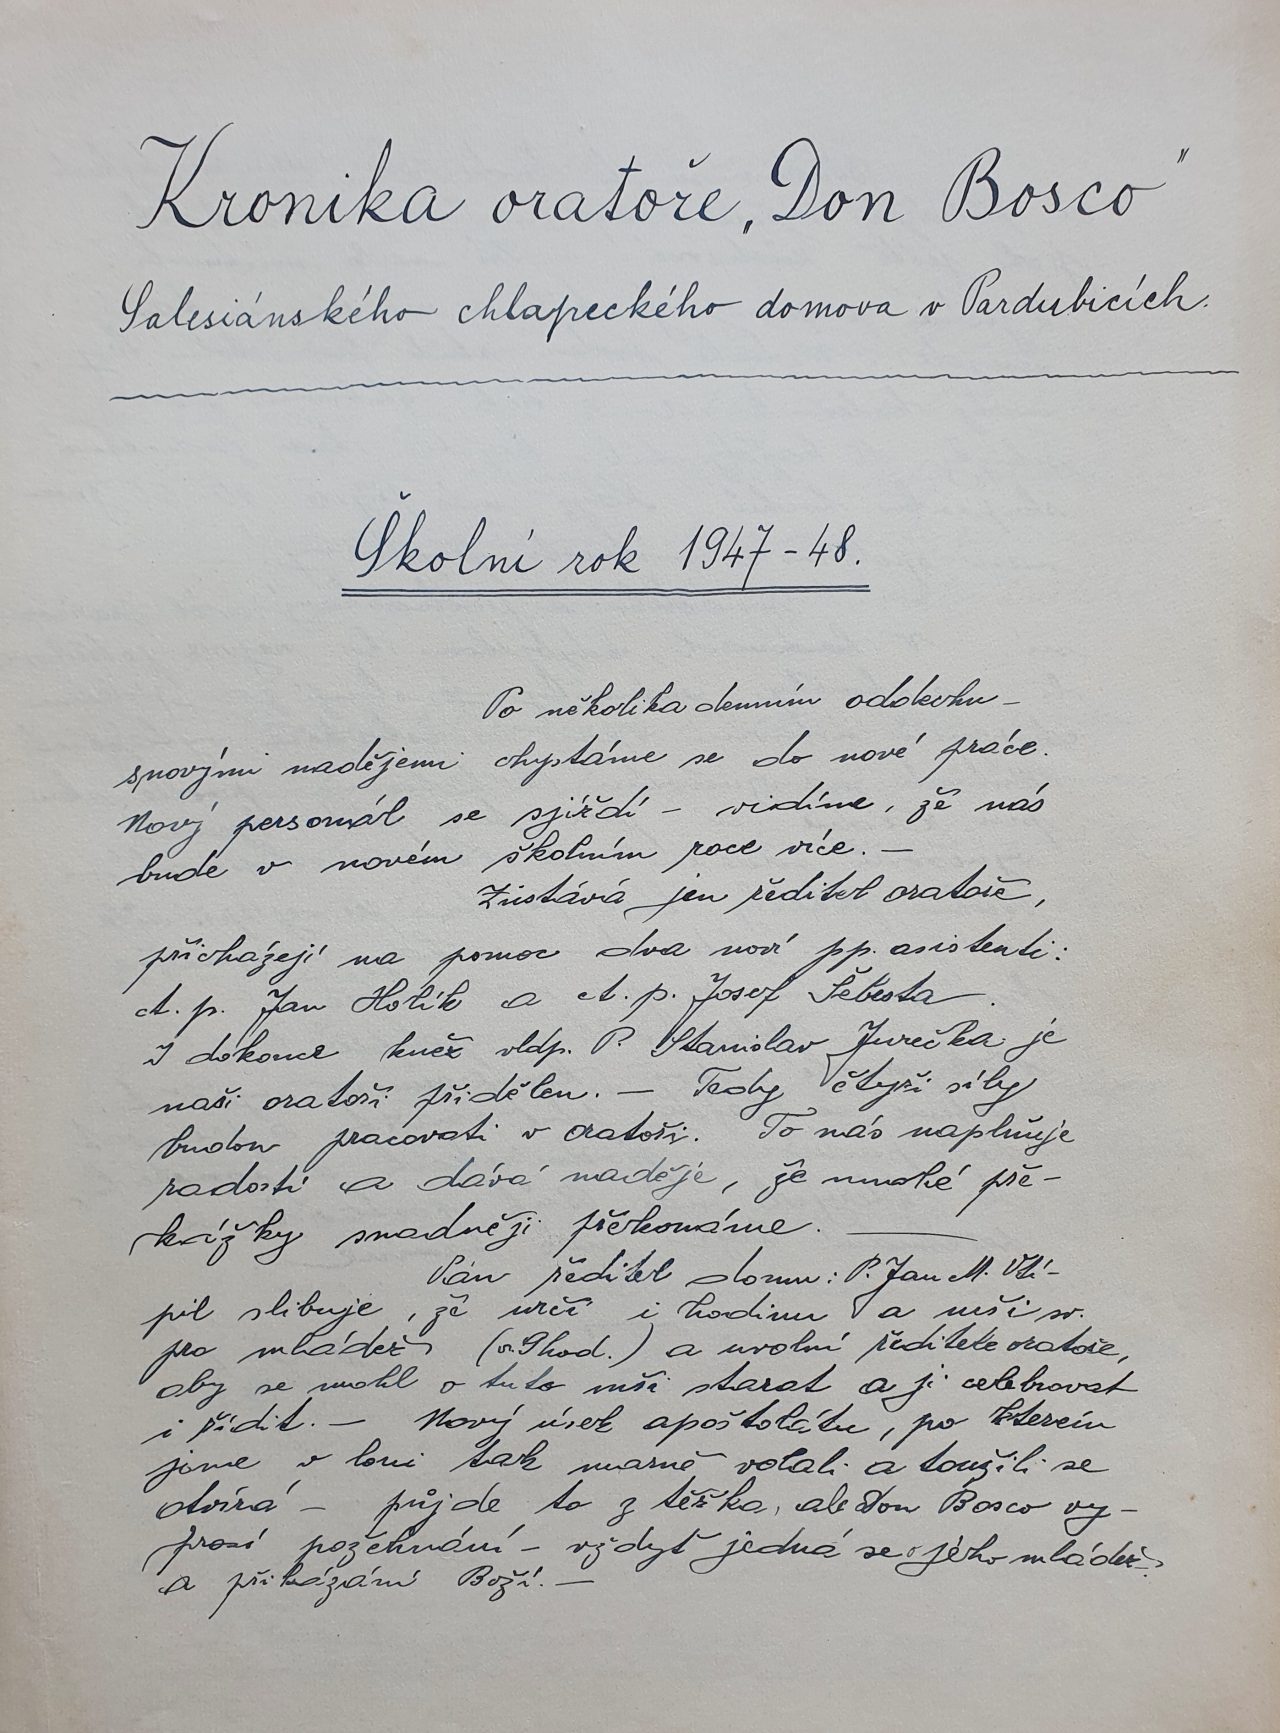 Kronika oratoře „Don Bosco"
Salesiánského chlapeckého domova v Pardubicích.
Školní rok 1947-48.
Po několika denním oddechu –
s novými nadějemi chystáme se do nové práce.
Nový personál se sjíždí – vidíme, že nás
bude v novém školním roce více. –
Zůstává jen ředitel oratoře,
přicházejí na pomoc dva noví pp. asistenti:
ct. p. Jan Holík a ct. p. Josef Šebesta.
I dokonce kněz vldp. P. Stanislav Jurečka je
naši oratoři přidělen. – Tedy čtyři síly
budou pracovati v oratoři. To nás naplňuje
radostí a dává naděje, že mnohé pře-
kážky snadněji překonáme. —
Pán ředitel domu: P. Jan M. Vtí-
pil slibuje, že určí i hodinu a mši sv.
pro mládež (v. 9 hod.) a uvolní ředitele oratoře,
aby se mohl o tuto mši starat a ji celebrovat
i řídit. – Nový úsek apoštolátu, po kterém
jsme v loni tak marně volali a toužili se
otvírá – půjde to z těžka, ale Don Bosco vy-
prosí požehnání – vždyť jedná se o jeho mládež
a přikázání Boží. –